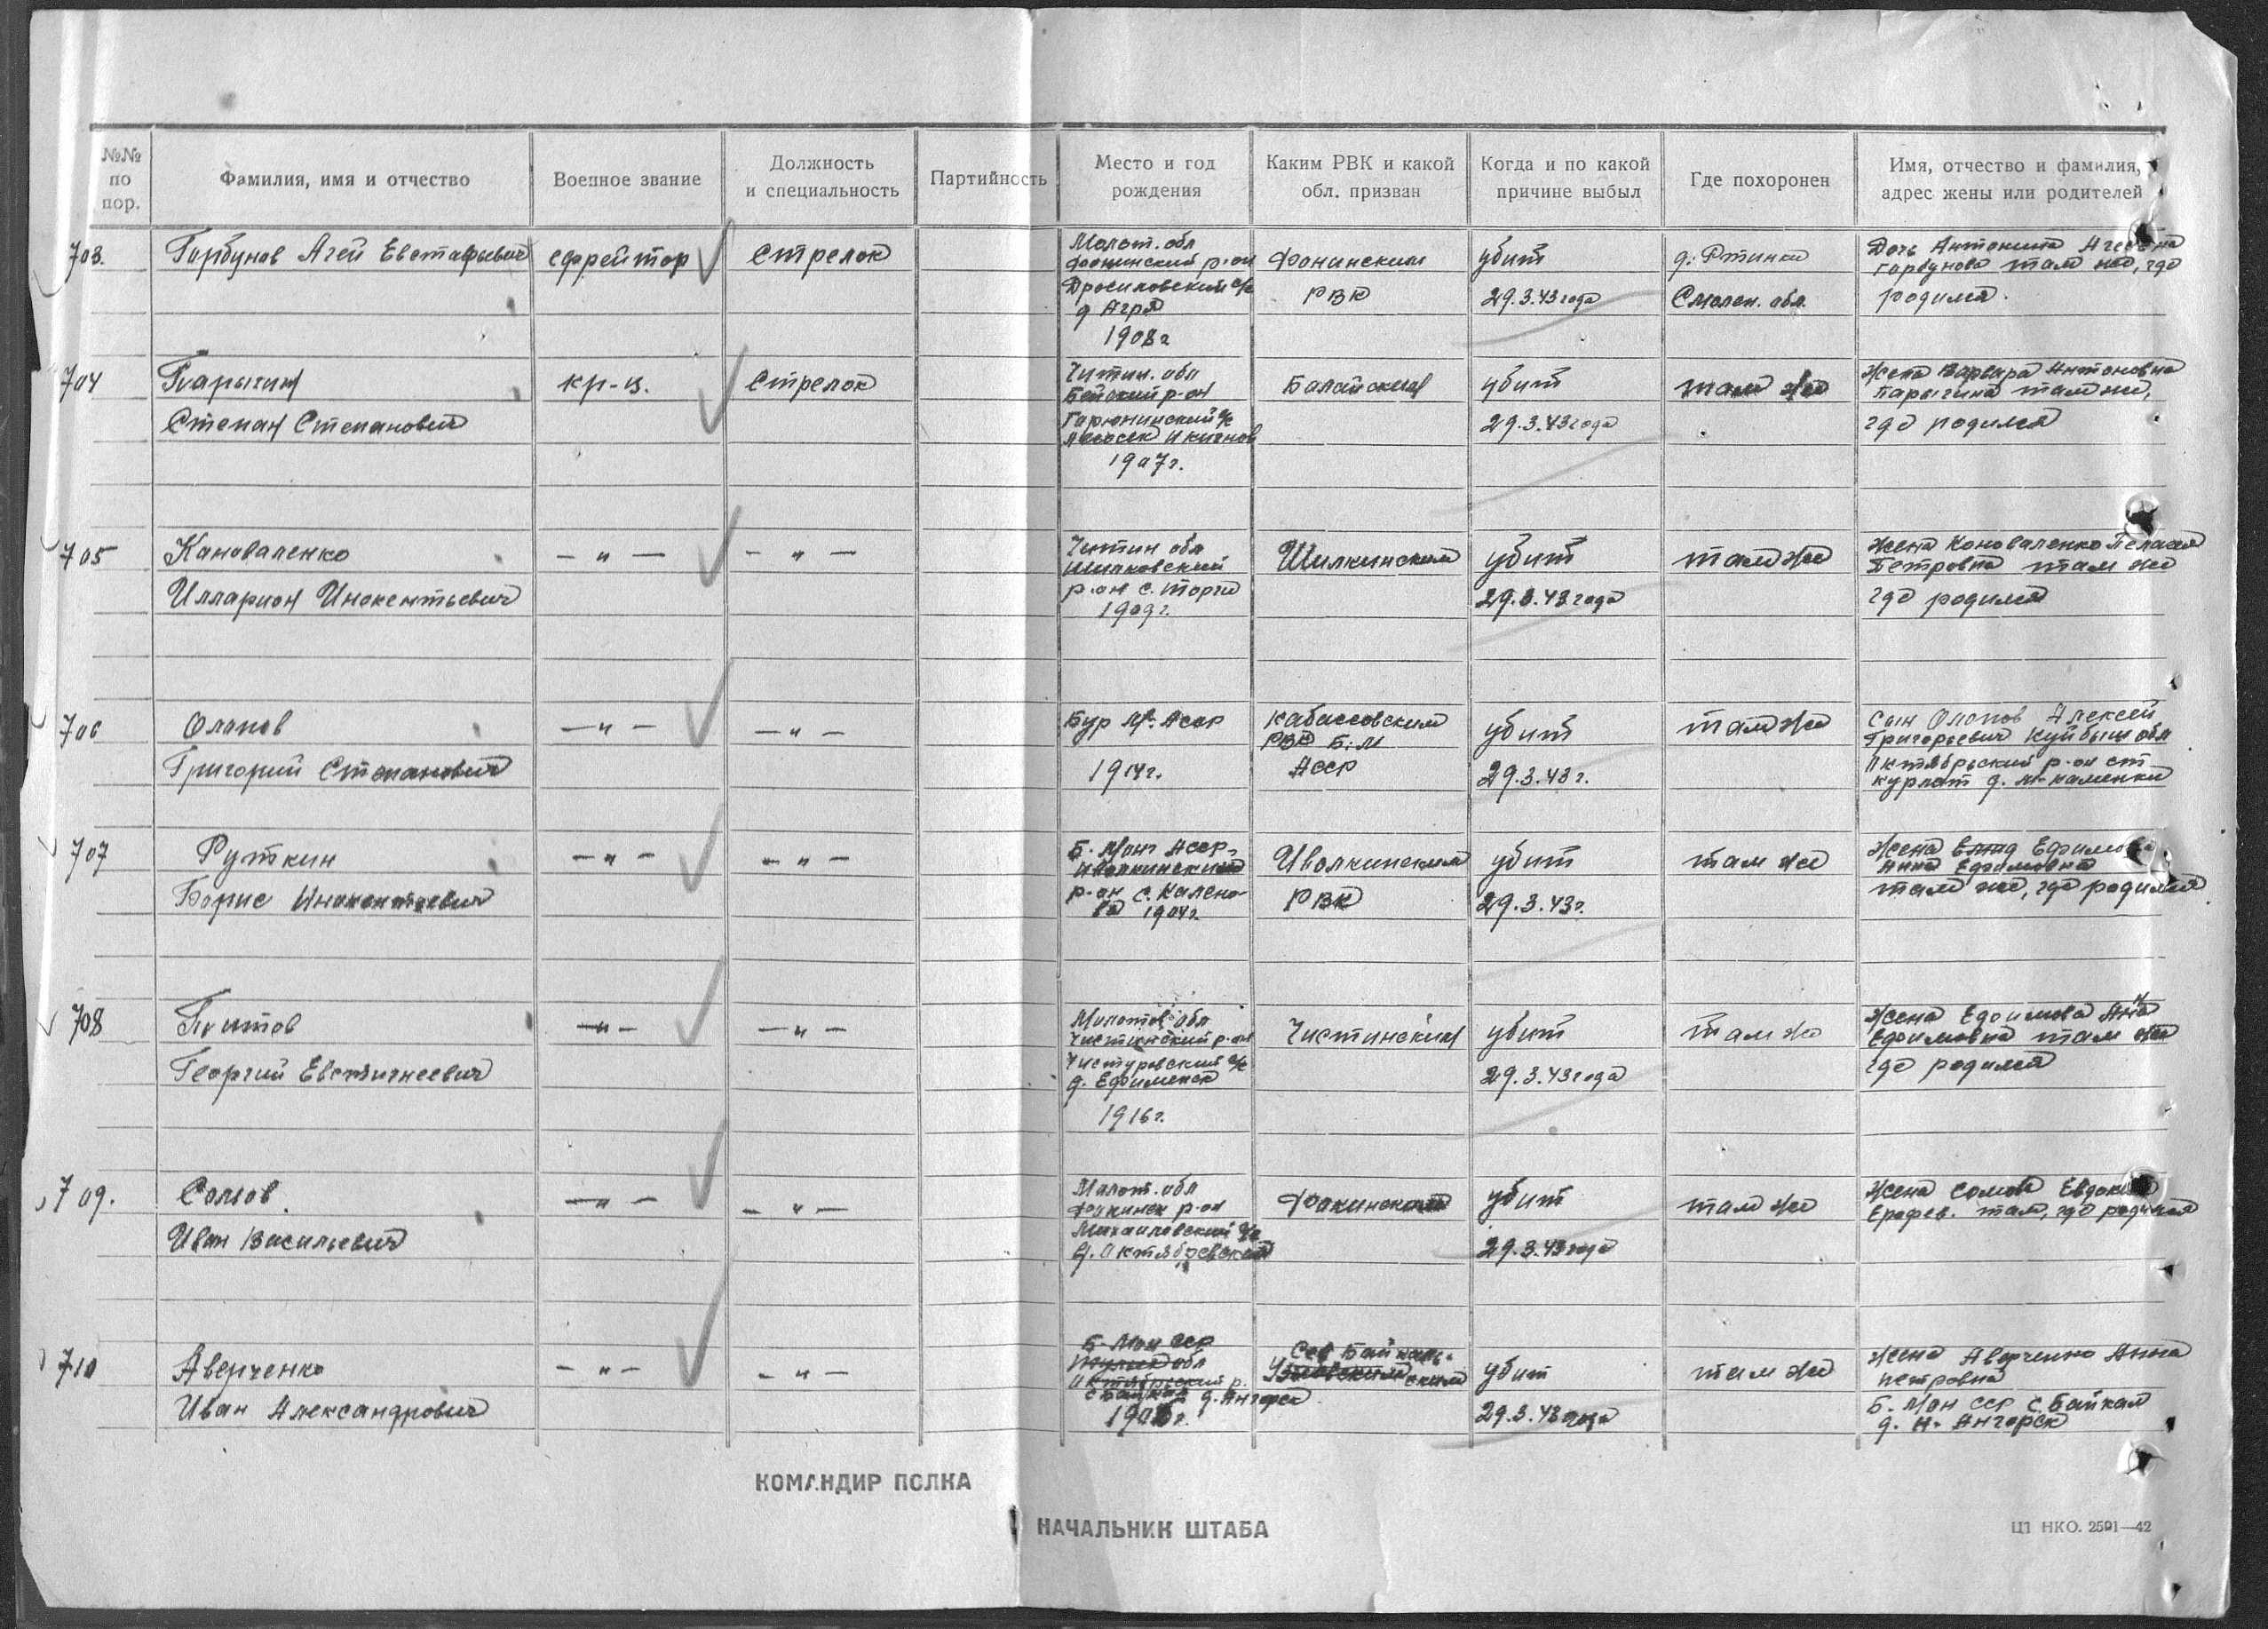 №№ по пор.
Фамилия, имя и отчество
Военное звание
Должность и специальность
Партийность
Место и год рождения
Каким РВК и какой обл. призван
Когда и по какой причине выбыл
Где похоронен
Имя, отчество и фамилия, адрес жены или родителей
703.
Горбунов Агей Евстафьевич
ефрейтор
Стрелок
Молот. обл
р-он
д Агря
1908г
Фокинским
РВК
убит
29.3.43 года
Смолен. обл.
Дочь Антонина Агеевна
Горбунова там же, где
родился.
704
Парыгин
Степан Степанович
кр-ц.
Стрелок
Читин. обл
р-он
1907г.
Балейским
убит
29.3.43 года
там же
Жена Варвара Антоновна
Парыгина там же,
где родился
705
Кановаленко
Илларион Инокентьевич
— " —
— " —
Читин обл
Шилковский
р-он с. Торга
1909г.
Шилкинским
убит
29.3.43 года
там же
Жена Коноваленко Пелагея
Петровна там же
где родился
706
Олопов
Григорий Степанович
— " —
— " —
Бур М. Асср
1914г.
Кабассовским
РВК Б. М
Асср
убит
29.3.43 г.
там же
Сын Олопов Алексей
Григорьевич Куйбыш обл
Октябрьский р-он ст
д. М-Каменки
707
Руткин
Борис Инокентьевич
— " —
— " —
Б. Монг Асср.
Иволкинский
р-он с. Калено-
ва 1904г.
Иволкинским
РВК
убит
29.3.43г.
там же
Жена Ефимова
Анна Ефимовна
там же, где родился
708
Титов
Георгий Евстигнеевич
— " —
— " —
Молотов обл
Частинский р-он
д. Ефименск
1916г.
Частинским
убит
29.3.43 года
там же
Жена Ефимова Анна
Ефимовна там же
где родился
709.
Сомов
Иван Васильевич
— " —
— " —
Молот. обл
Фокинск р-он
Михайловский с/с
д. Октябревский
Фокинским
убит
29.3.43 года
там же
Жена Сомова Евдокия
Ерофев. там, где родился
710
Аверченко
Иван Александрович
— " —
— " —
Б-Мон сср
обл
Октябрьский р.
с Байкал д. Ангорск
190 г.
Сев Байкаль-
ским
убит
29.3.43 года
там же
Жена Аверченко Анна
петровна
Б. Мон сср с. Байкал
д. Н. Ангорск
КОМАНДИР ПОЛКА
НАЧАЛЬНИК ШТАБА
ЦТ НКО. 2591—42